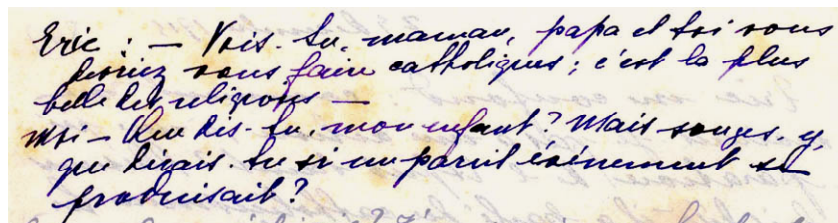 Eric : — Vois-tu, maman, papa et toi vous
devriez vous faire catholiques ; c'est la plus
belle des religions —
Moi — Que dis-tu, mon enfant ? Mais songes-y,
que dirais-tu si un pareil événement se
produisait ?